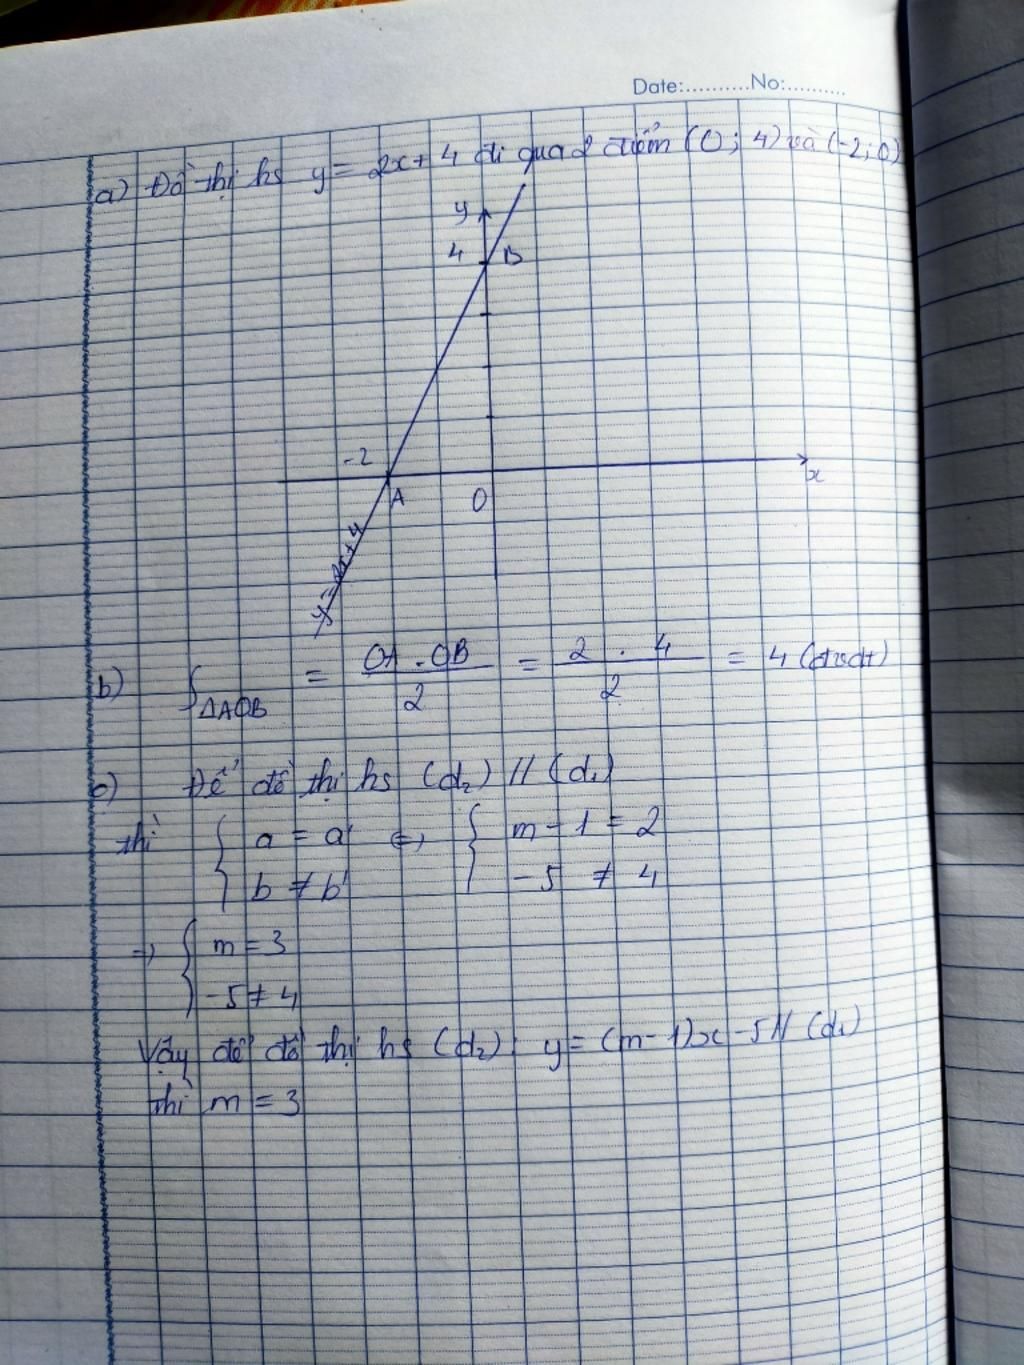 Date:..........No:..........
a) Đồ thị hs y = 2x + 4 đi qua 2 điểm (0; 4) và (-2; 0)
y
4 B
-2
A O x
y = 2x + 4
b) S△AOB = OA . OB / 2 = 2 . 4 / 2 = 4 (đvdt)
c) Để đồ thị hs (d₂) // (d₁)
thì { a = a' ⇔ { m - 1 = 2
b ≠ b' -5 ≠ 4
⇒ { m = 3
-5 ≠ 4
Vậy để đồ thị hs (d₂): y = (m-1)x - 5 // (d₁)
thì m = 3